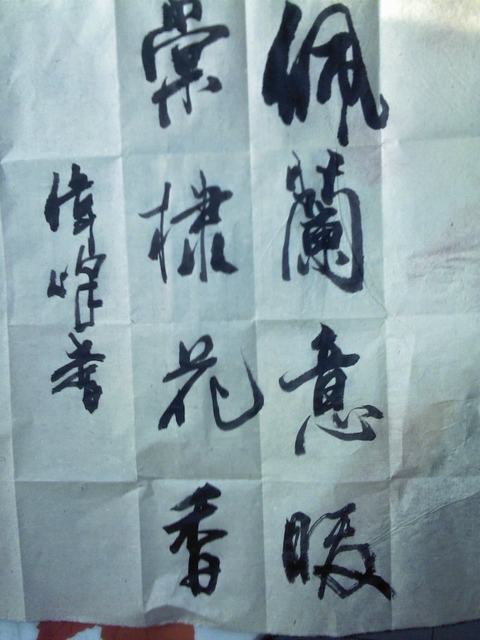 佩蘭意暖
棠棣花香
偉峰書